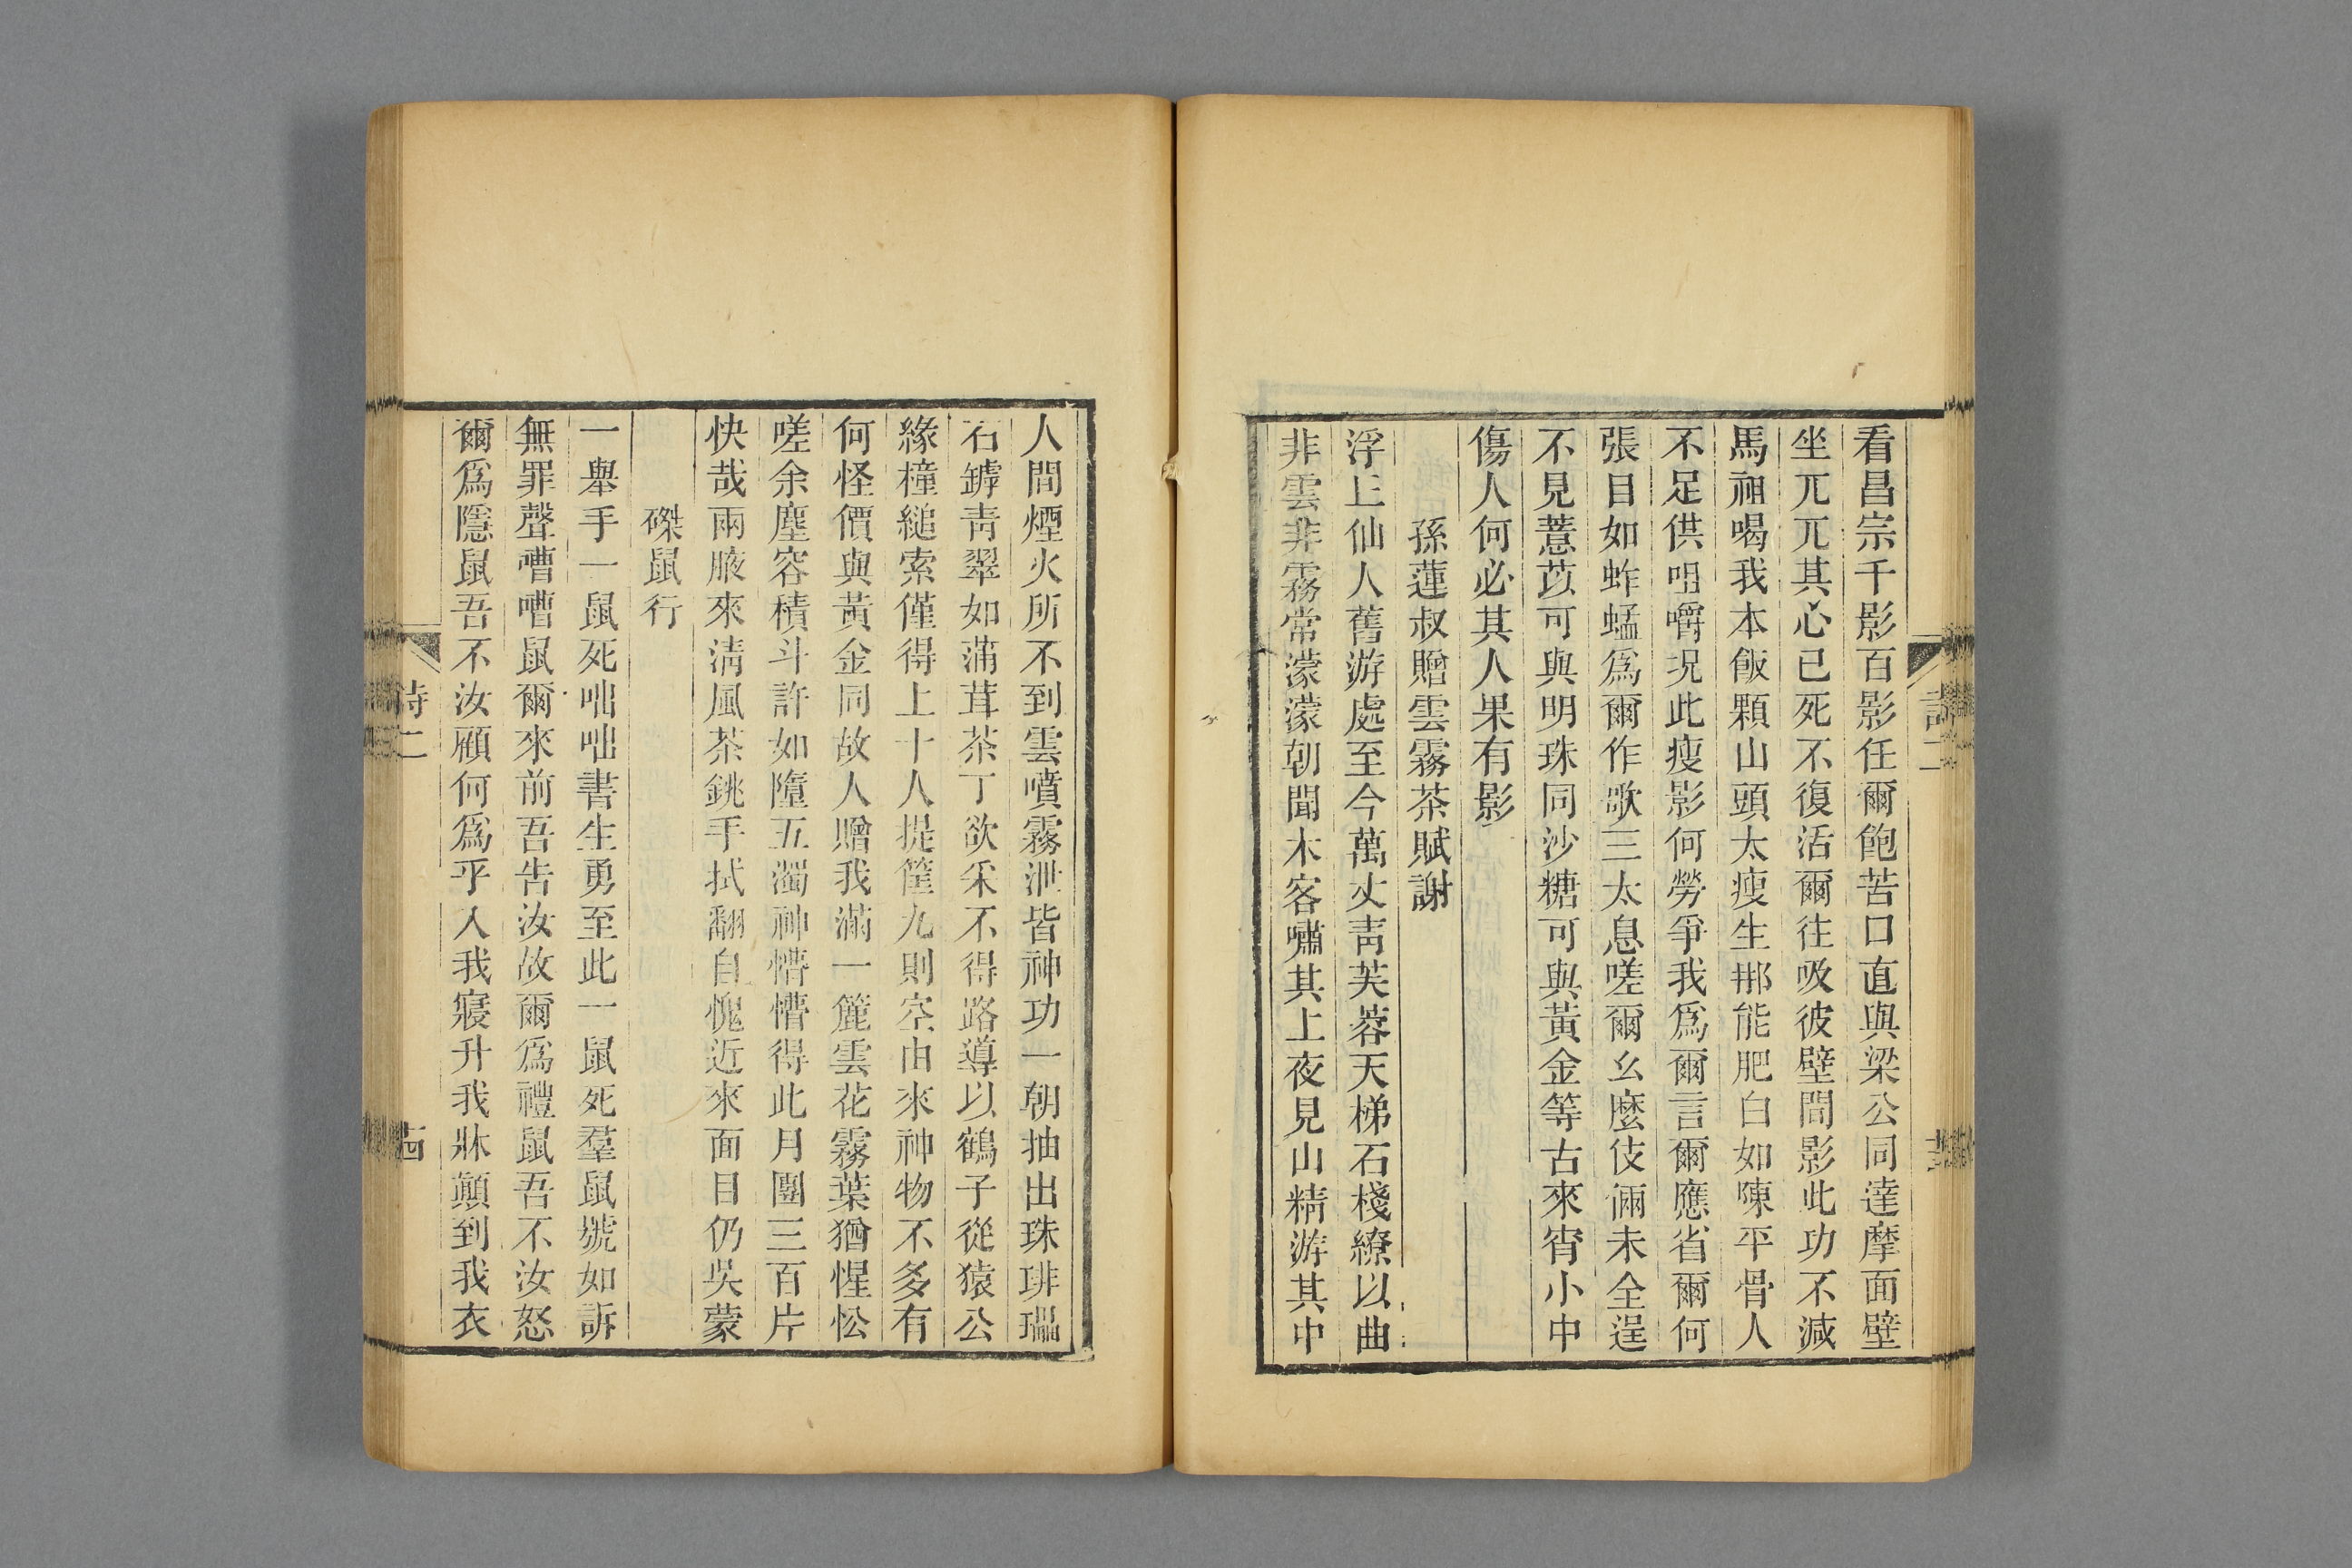 看昌宗千影百影任爾飽苦口直與梁公同達摩面壁
坐兀兀其心已死不復活爾往吸彼壁間影此功不減
馬祖喝我本飯顆山頭太瘦生那能肥白如陳平骨人
不足供咀嚼況此瘦影何勞爭我爲爾言爾應省爾何
張目如蚱蜢爲爾作歌三太息嗟爾幺麼伎倆未全逞
不見薏苡可與明珠同沙糖可與黃金等古來宵小中
傷人何必其人果有影
孫蓮叔贈雲霧茶賦謝
浮上仙人舊游處至今萬丈靑芙蓉天梯石棧繚以曲
非雲非霧常濛濛朝聞木客嘯其上夜見山精游其中
詩二
人間煙火所不到雲噴霧泄皆神功一朝抽出珠琲瓃
石罅靑翠如蒲茸茶丁欲采不得路導以鶴子從猿公
緣橦縋索僅得上十人提筐九則空由來神物不多有
何怪價與黃金同故人贈我滿一簏雲花霧葉猶惺忪
嗟余塵容積斗許如墮五濁神懵懵得此月團三百片
快哉兩腋來淸風茶銚手拭翻自愧近來面目仍吳蒙
磔鼠行
一舉手一鼠死咄咄書生勇至此一鼠死羣鼠號如訴
無罪聲嘈嘈鼠爾來前吾吿汝故爾爲禮鼠吾不汝怒
爾爲隱鼠吾不汝顧何爲乎入我寢升我牀顚到我衣
詩二